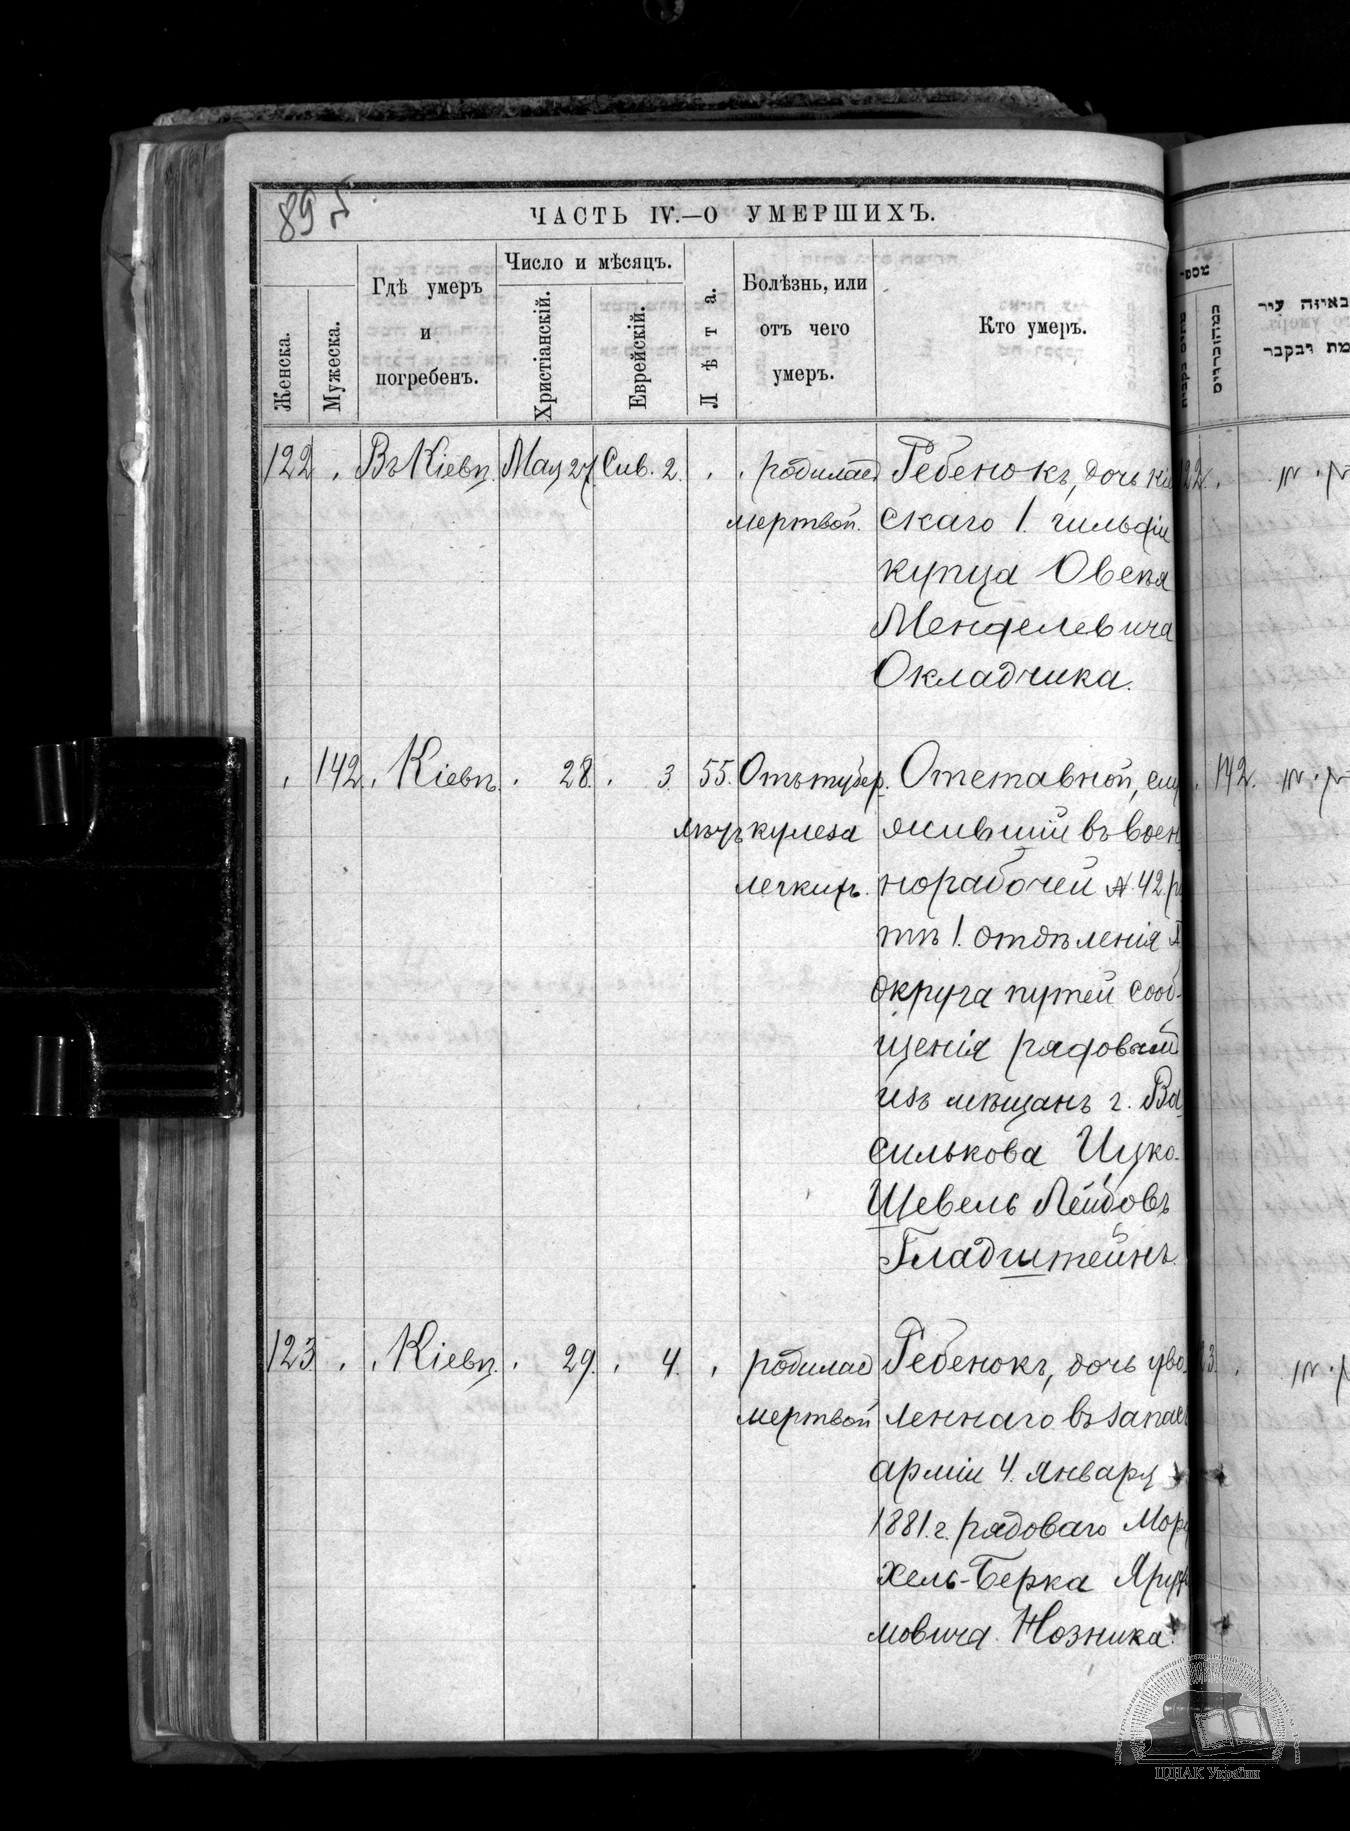 895
ЧАСТЬ IV.—О УМЕРШИХЪ.
Женска.
Мужеска.
Гдѣ умеръ
и
погребенъ.
Число и мѣсяцъ.
Христіанскій.
Еврейскій.
Лѣта.
Болѣзнь, или
отъ чего
умеръ.
Кто умеръ.
122 Въ Кіевѣ. Мая 27. Сив. 2. родилась Ребенокъ, дочь кіе
мертвой. скаго 1. гильдіи
купца Овсея
Менделевича
Окладчика.
142. Кіевѣ. 28. 3. 55. Отъ тубер Отставной, слу
куле­за жившій въ воен
легкихъ. норабочей № 42. ро
тѣ 1. отдѣленія
округа путей сооб-
щенія рядовый
изъ мѣщанъ г. Ва
силькова Ицко-
Шевель Лейбовъ
Гладштейнъ.
123 Кіевѣ. 29. 4. родилась Ребенокъ, дочь уво
мертвой леннаго въ запас
арміи 4. января
1881. г. рядоваго Морд
хель-Берка
мовича Нозника.
מספר
122.
142.
ЦДІАК України